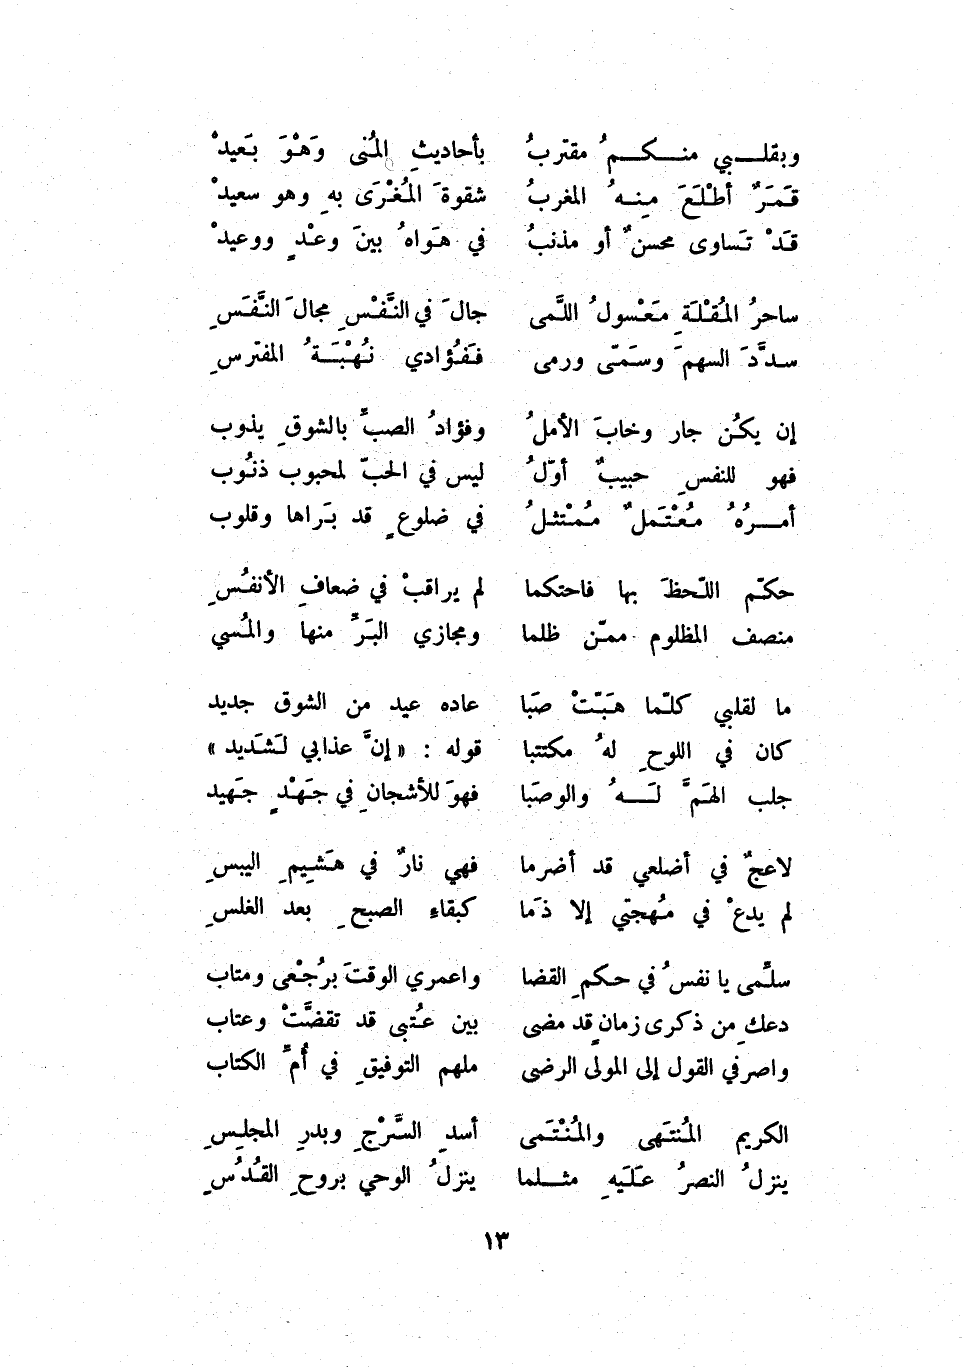 وبقلـــبي منـــكـــمُ مقتربُ بأحاديثِ المُنى وَهْوَ بَعيدْ
قَمَرٌ أطْلَعَ مِنهُ المغربُ شقوةَ المُغْرَى بهِ وهو سعيدْ
قَدْ تَساوى محسنٌ أو مذنبُ في هَواهُ بينَ وعْدٍ ووعيدْ
ساحرُ المُقْلَةِ مَعْسولُ اللَّمى جالَ في النَّفْسِ مجالَ النَّفَسِ
سدَّدَ السهمَ وسَمّى ورمى فَفُؤادي نُهْبَةُ المفترسِ
إن يكُن جار وخابَ الأملُ وفؤادُ الصبِّ بالشوقِ يذوب
فهو للنفسِ حبيبٌ أوّلُ ليس في الحبّ لمحبوب ذنُوب
أمـــرُهُ مُعْتَملٌ مُمْتثلُ في ضلوعٍ قد بَراها وقلوب
حكّم اللّحظَ بها فاحتكما لم يراقبْ في ضعافِ الأنفُسِ
منصف المظلوم ممّن ظلما ومجازي البَرِّ منها والمُسي
ما لقلبي كلّما هَبّتْ صَبا عاده عيد من الشوق جديد
كان في اللوحِ لهُ مكتتبا قوله : « إنَّ عذابي لَشَديد »
جلب الهَمَّ لَـــهُ والوصَبا فهوَ للأشجانِ في جَهْدٍ جَهيد
لاعجٌ في أضلعي قد أضرما فهي نارٌ في هَشيِمِ اليبسِ
لم يدعْ في مُهجتي إلا ذَما كبقاءِ الصبحِ بعد الغلسِ
سلَّمى يا نفسُ في حكمِ القضا واعمري الوقتَ برُجْعى ومتاب
دعكِ من ذكرى زمانٍ قد مضى بين عُتبى قد تقضَّتْ وعتاب
واصرفي القول إلى المولى الرضى ملهم التوفيقِ في أُمِّ الكتاب
الكريم المُنتهى والمُنْتَمى أسدِ السَّرْجِ وبدرِ المجلِسِ
ينزلُ النصرُ عَلَيهِ مثـــلما ينزلُ الوحي بروحِ القُدُسِ
١٣